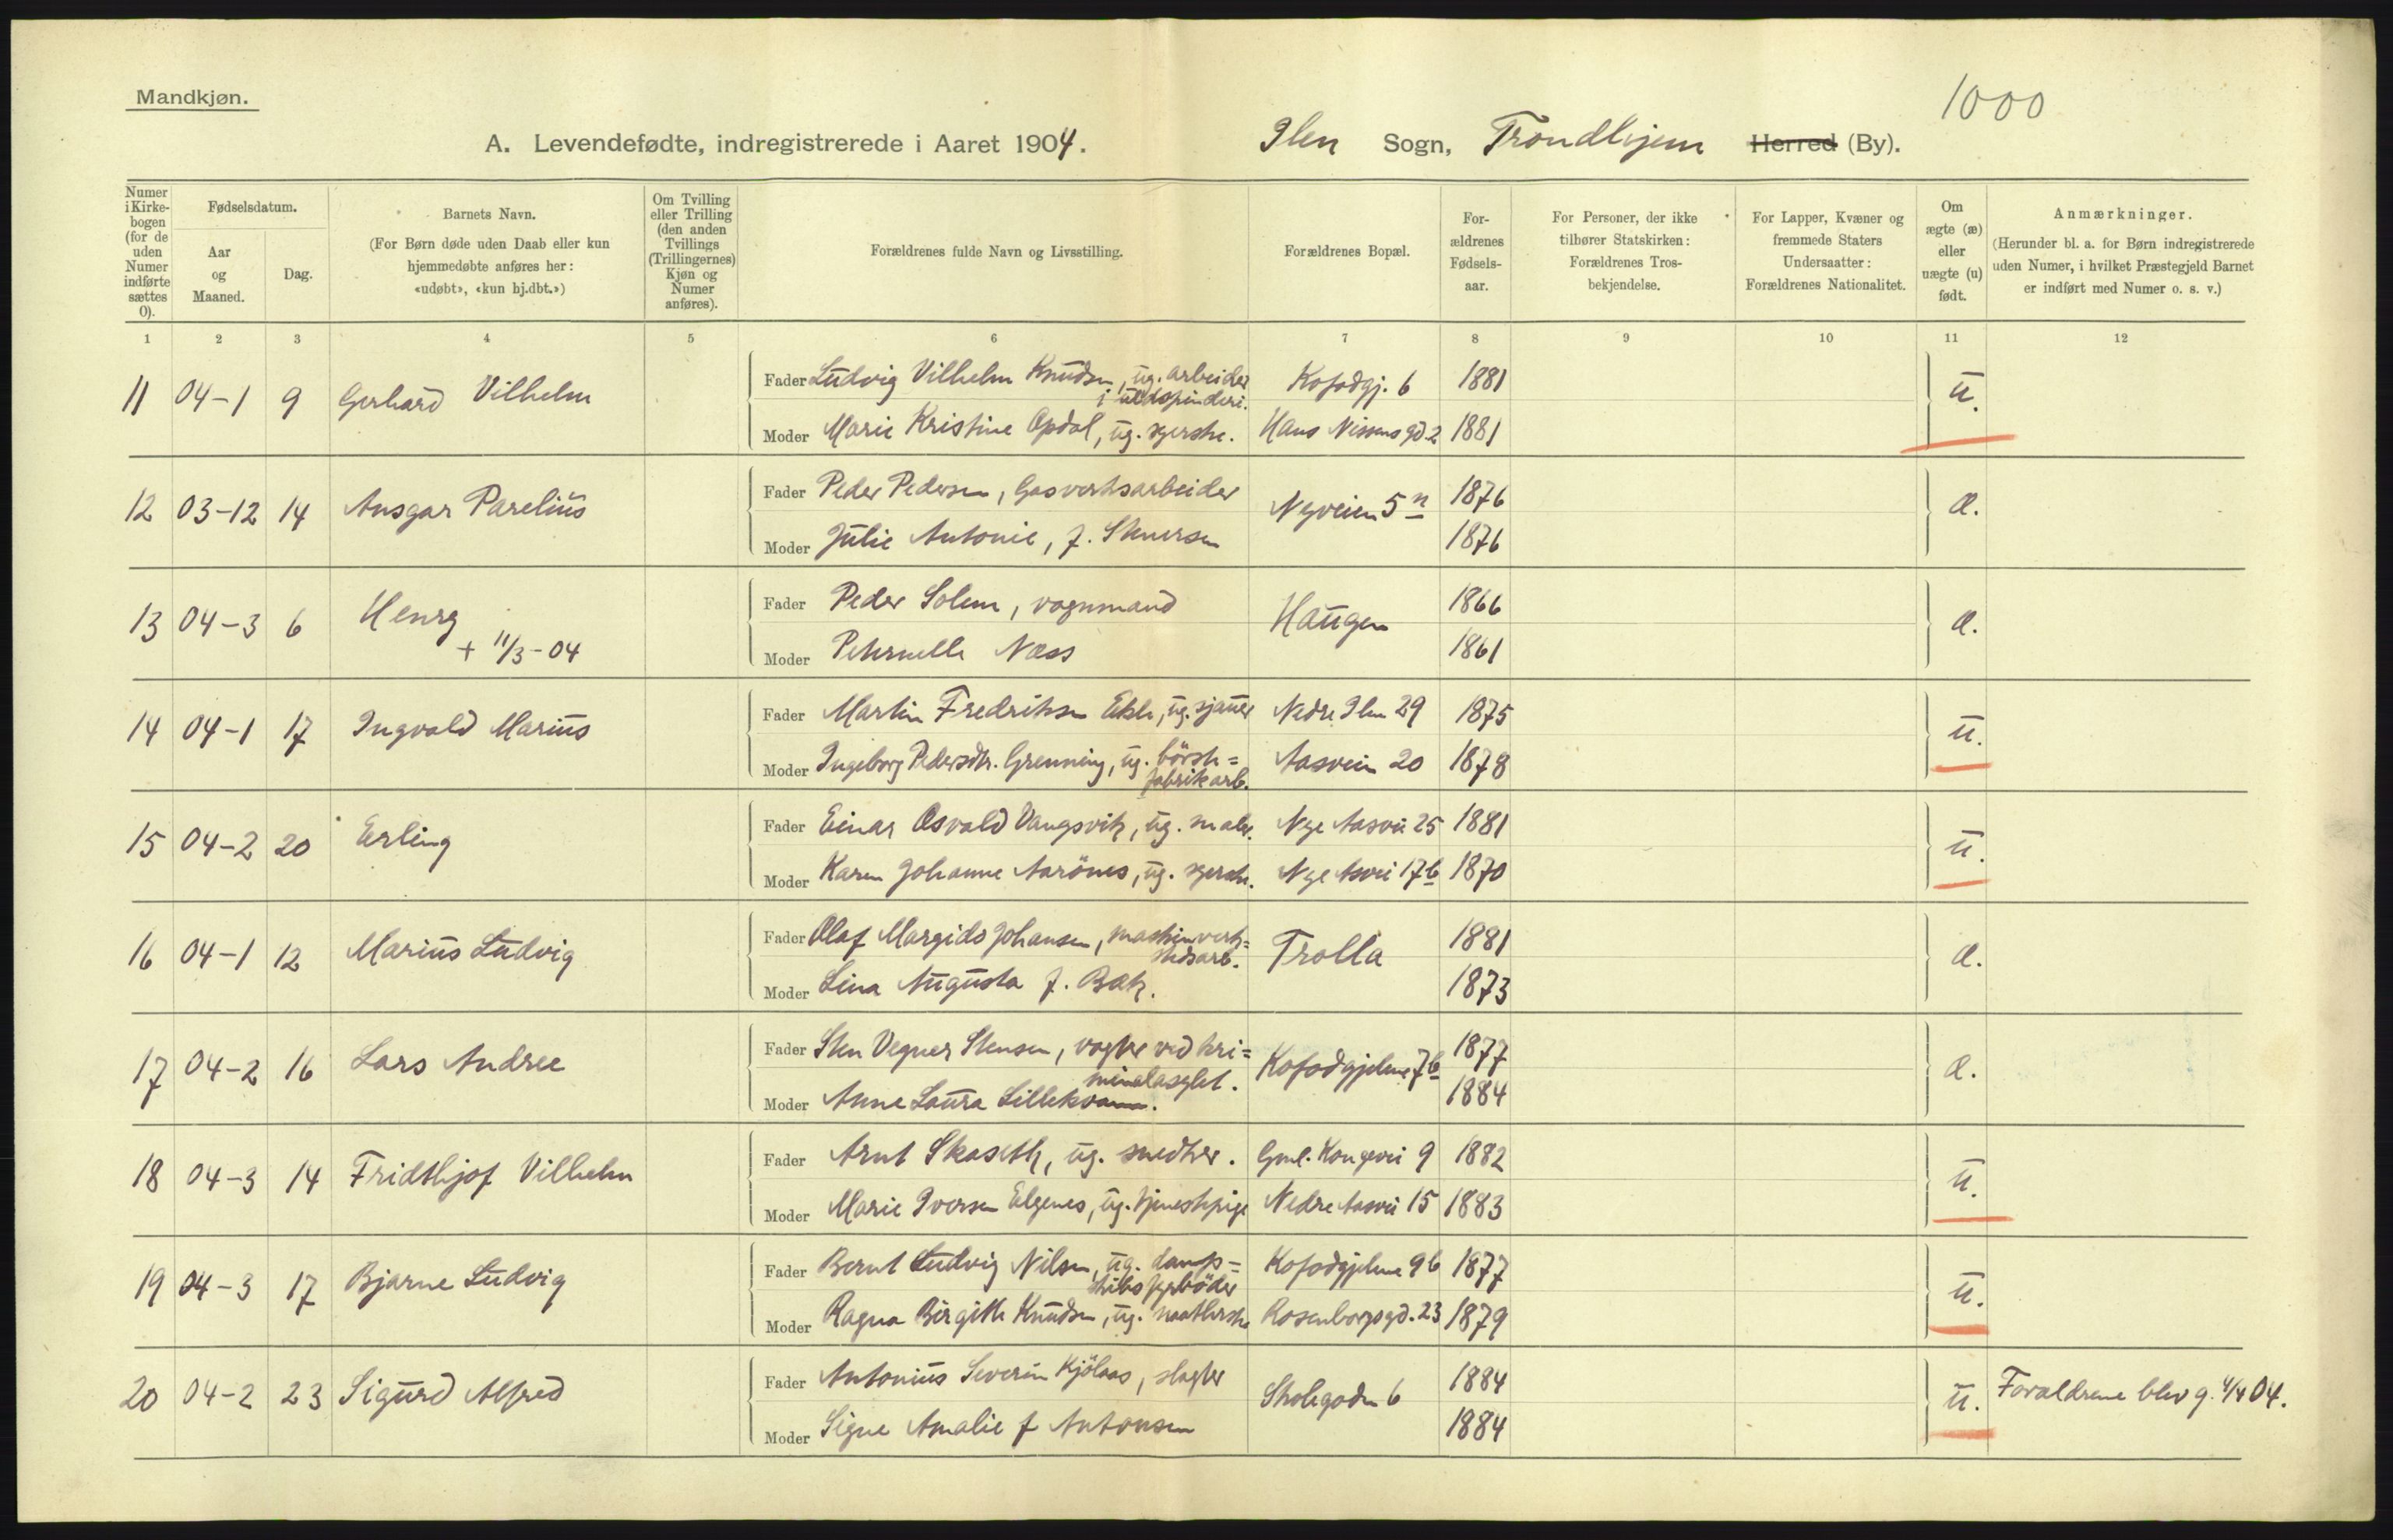 Mandkjøn.
1000
A. Levendefødte, indregistrerede i Aaret 1904.
Ilen Sogn, Trondhjem Herred (By).
Numer i Kirkebogen (for de uden Numer indførte sættes 0).
Fødselsdatum.
Aar og Maaned.
Dag.
Barnets Navn.
(For Børn døde uden Daab eller kun hjemmedøbte anføres her: «udøbt», «kun hj.dbt.»)
Om Tvilling eller Trilling (den anden Tvillings (Trillingernes) Kjøn og Numer anføres).
Forældrenes fulde Navn og Livsstilling.
Forældrenes Bopæl.
Forældrenes Fødselsaar.
For Personer, der ikke tilhører Statskirken: Forældrenes Trosbekjendelse.
For Lapper, Kvæner og fremmede Staters Undersaatter: Forældrenes Nationalitet.
Om ægte (æ) eller uægte (u) født.
Anmærkninger.
(Herunder bl. a. for Børn indregistrerede uden Numer, i hvilket Præstegjeld Barnet er indført med Numer o. s. v.)
1 2 3 4 5 6 7 8 9 10 11 12
11 04-1 9 Gerhard Vilhelm
Fader Ludvig Vilhelm Knudsen, ug. arbeider i uldspinderi. Kofodgj. 6 1881
Moder Marie Kristine Opdal, ug. syerske. Hans Nissens gd 2 1881
u.
12 03-12 14 Ansgar Parelius
Fader Peder Pedersen, Gasverksarbeider Nyveien 5 n 1876
Moder Julie Antonie, f. Stenersen 1876
æ.
13 04-3 6 Henry + 11/3-04
Fader Peder Solem, vognmand Haugen 1866
Moder Petrnelle Næss 1861
æ.
14 04-1 17 Ingvald Marius
Fader Martin Fredriksen Ekle, ug. sjauer Nedre Ilen 29 1875
Moder Ingeborg Pedersdtr. Grenning, ug. börstefabrikarb. Aasveien 20 1878
u.
15 04-2 20 Erling
Fader Einar Osvald Vangsvik, ug. maler. Nye Aasvei 25 1881
Moder Karen Johanne Aarönes, ug. syerske. Nye Asvei 17b 1870
u.
16 04-1 12 Marius Ludvig
Fader Olaf Margido Johansen, maskinverkstedsarb. Trolla 1881
Moder Lina Augusta f. Bæk. 1873
æ.
17 04-2 16 Lars Andree
Fader Sten Vegner Stensen, vogter ved kriminalasylet. Kofodgjelene 7b 1877
Moder Anne Laura Lillekvam. 1884
æ.
18 04-3 14 Fridthjof Vilhelm
Fader Arnt Skaseth, ug. snedker. Gml. Kongevei 9 1882
Moder Marie Iversen Elgenes, ug. tjenestepige Nedre Aasvei 15 1883
u.
19 04-3 17 Bjarne Ludvig
Fader Bernt Ludvig Nilsen, ug. dampskibsfyrböder Kofodgjelene 9b 1877
Moder Ragna Birgitte Knudsen, ug. naatlerske Rosenborgsgd. 23 1879
u.
20 04-2 23 Sigurd Alfred
Fader Antonius Severin Kjölaas, slagter Skolegaden 6 1884
Moder Signe Amalie f Antonsen 1884
u. Forældrene blev g. 4/4 04.